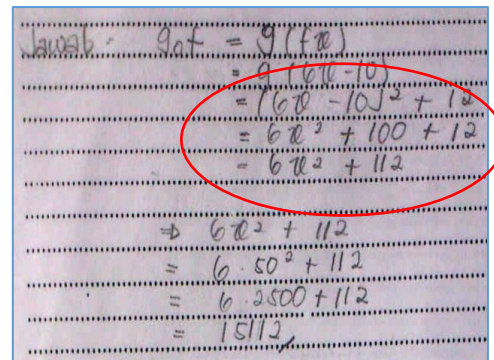 Jawab: gof = g(fx)
= g (6x - 10)
= (6x - 10)² + 12
= 6x² + 100 + 12
= 6x² + 112
⇒ 6x² + 112
= 6 . 50² + 112
= 6 . 2500 + 112
= 15112